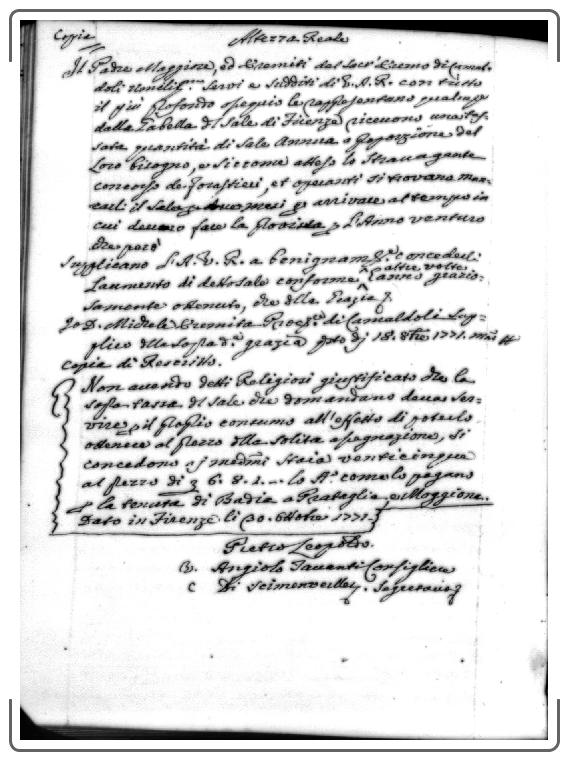 Copia
Altezza Reale
Il Padre Maggiore, ed Eremiti del Sacr' Eremo di Camal-
doli Umiliss.mi Servi e Sudditi di V. A. R. con tutto
il più profondo ossequio le rappresentano qualm.e
dalla Tabella del Sale di Firenze ricevono una tas-
sata quantità di Sale Annua a proporzione del
loro bisogno, e siccome atteso lo stravagante
concorso de forastieri, et operanti si trovano man-
carli il Sale due mesi arrivare al tempo in
cui devono fare la provista p. l'Anno venturo
che però
Supplicano L'A. V. R. a benignam.te concederli
L'aumento di detto Sale conforme altre volte
anno grazio-
samente ottenuto, che della Grazia
Io D. Michele Eremita Proc.re di Camaldoli sup-
plico della sop.a d.a grazia q.to dì 18. 8bre 1771. m
Copia di Rescritto.
Non avendo detti Religiosi giustificato che la
sop.a tassa del Sale che domandano deva ser-
vire p. il proprio consumo all'effetto di poterlo
ottenere al prezzo della solita assegnazione, si
concedono a i medmi Staia venticinque
al prezzo di 6. 8. 1. lo St.o come lo pagano
p. la tenuta di Badia a Prataglia, e Moggiona.
Dato in Firenze li 30. Ottobre 1771.
Pietro Leopoldo.
V. Angiolo Tavanti Consigliere
C Di Segretario